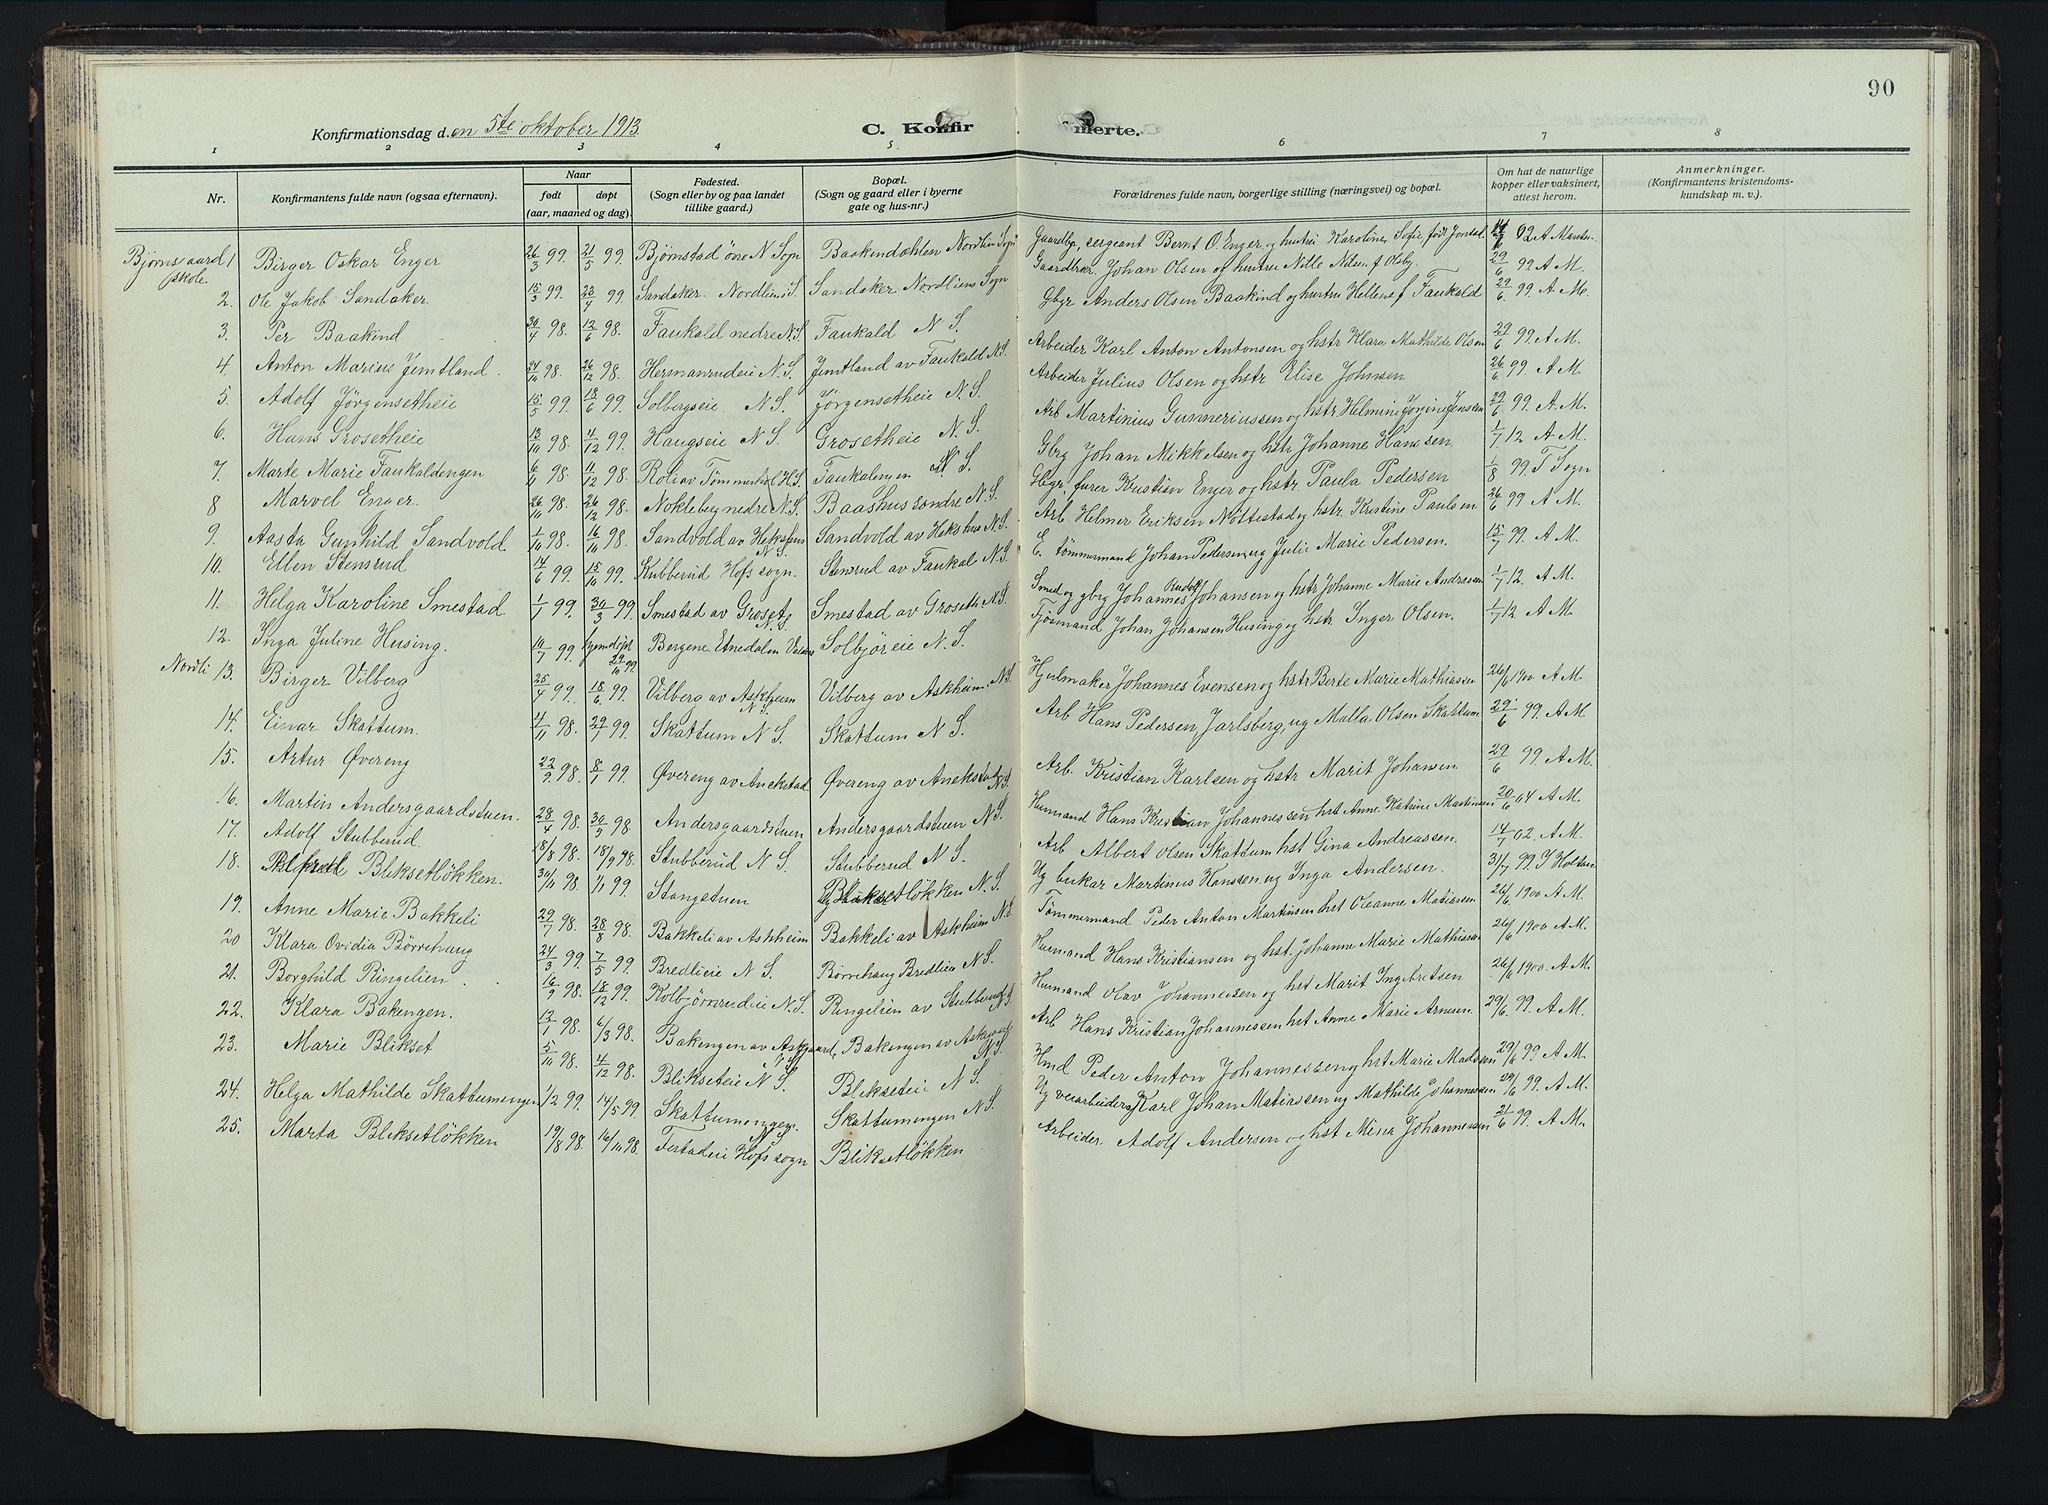 90
Konfirmationsdag d. en 5te oktober 1913
C. Konfir merte.
1 2 3 4 5 6 7 8
Nr. Konfirmantens fulde navn (ogsaa efternavn). Naar født døpt (aar, maaned og dag). Fødested. (Sogn eller by og paa landet tillike gaard.) Bopæl. (Sogn og gaard eller i byerne gate og hus-nr.) Forældrenes fulde navn, borgerlige stilling (næringsvei) og bopæl. Om hat de naturlige kopper eller vaksinert, attest herom. Anmerkninger. (Konfirmantens kristendoms-kundskap m. v.)
Bjørnsgaard skole. 1 Birger Oskar Enger 26/3 99. 21/5 99. Bjørnstad øvre N Sogn Baakindahlen Nordlien Sogn Gaardbr. sergeant Bernt O. Enger og hustru Karoline Sofie, født 14/6 02 A
2. Ole Jakob Sandaker 15/3 99. 23/4 99. Sandaker Nordliens S. Sandaker Nordliens Sogn Gaardbkr. Johan Olsen og hustru Nille Nilsen f. Olsby. 29/6 99 A M.
3. Per Baakind 30/4 98. 12/6 98. Faukald nedre N. S. Faukald N S. Gbgr Anders Olsen Baakind og hustru Hellene f Faukald 29/6 99. A. M.
4. Anton Marius Jemtland. 24/10 98. 26/12 98. Hermanrudeie N. S. Jemtland av Faukald N. S. Arbeider Karl Anton Antonsen og hstr Klara Mathilde Olsen 29/6 99. A M.
5. Adolf Jørgensetheie 15/5 99. 18/6 99. Solbergseie N. S. Jørgensetheie N. S. Arbeider Julius Olsen og hstr Elise Johnsen 26/6 99. A M.
6. Hans Grosetheie 13/10 98. 4/12 99. Haugseie N S. Grosetheie N. S. Arb Martinius Gunneriussen og hstr Helmine Jørgine Jensen 29/6 99. A M.
7. Marte Marie Faukaldengen 6/11 98. 11/12 98. Rolie av Tømmerhol H S. Faukalengen N. S. Gbrg Johan Mikkelsen og hstr Johanne Hanssen 1/7 12 A M.
8 Marvel Enger. 26/10 98. 26/12 98. Nokleberg nedre N. S. Baashus søndre N. S. Gbgr. furer Kristian Enger og hstr Paula Pedersen 1/8 99. T Sogn
9. Aasta Gunhild Sandvold 1/10 98. 16/10 98. Sandvold av Hekshus N. S. Sandvold av Hekshus N. S. Arb Helmer Eriksen Nøttestad og hstr Kristine Paulsen 26/6 99 A M.
10. Ellen Stensrud 14/6 99. 15/10 99. Kubberud Hofs sogn. Stensrud av Faukal N. S. E. tømmermand Johan Pedersen, ug Julie Marie Pedersen. 15/7 99. A M.
11. Helga Karoline Smestad 1/1 99. 30/3 99. Smestad av Groset N. S. Smestad av Groseth N. S. Smed og gbrg Johannes Rudolf Johansen og hstr Johanne Marie Andresen 1/7 12. A M.
12. Inga Juline Husing. 11/7 99. hjemdøpt 29/10 99 Bergene Etnedalen Valdres Solbjøreie N. S. Fjøsmand Johan Johansen Husing og hstr Inger Olsen. 1/7 12 A M.
Nordli 13. Birger Vilberg 25/4 99. 18/6 99. Vilberg av Askheim N. S. Vilberg av Askheim. N. S. Hjulmaker Johannes Evensen og hstr Berte Marie Mathiassen 26/6 1900 A M.
14. Einar Skattum. 4/11 98. 29/1 99. Skattum N S. Skattum N S. Arb Hans Pedersen, Jarlsberg, ug Malla Olsen Skattum 29/6 99. A M.
15. Artur Øvereng 22/9 98. 8/1 99. Øvereng av Anekstad Øvereng av Anekstad N. S. Arb. Kristian Karlsen og hstr Marit Johansen 29/6 99 A M.
16. Martin Andersgaardstuen. 28/4 98. 30/5 98. Andersgaardstuen Andersgaardstuen N. S. Husmand Hans Kristian Johannessen hst Anne Katrine Martinsen 20/6 04 A M.
17. Adolf Stubberud. 18/8 98. 18/9 98. Stubberud N S. Stubberud N S. Arb Albert Olsen Skattum hst Gina Andreassen. 14/7 02. A M.
18. Blikseløkken. 30/11 98. 1/1 99. Stangstuen Bliksetløkken N. S. Ug bukar Martinus Hanssen ug Inga Andersen. 31/7 99. I Holtan
19. Anne Marie Bakkeli 29/7 98. 28/8 98. Bakkeli av Askheim Bakkeli av Askheim N. S. Tømmermand Peder Anton Martinsen hst Oleanne Matiassen 26/6 1900 A M.
20 Klara Ovidia Børrehaug 24/3 99. 7/5 99. Bredlieie N S. Børrehaug Bredlien N S. Husmand Hans Kristiansen og hst. Johanne Marie Mathissen 26/6 1900 A M.
21. Borghild Ringelien. 16/9 98. 18/12 99. Kolbjørnrudeie N. S. Ringelien av Stubberud N. S. Husmand Olav Johannessen og hst Marit Ingebretsen 26/6 1900. A M.
22. Klara Bakengen. 12/1 98. 6/3 98. Bakengen av Askjgaard, N S Bakengen av N. S. Arb Hans Kristian Johannessen hst Anne Marie Arnesen. 29/6. 99. A M.
23. Marie Blikset 5/10 98. 4/12 98. Blikseteie N S. Blikseteie N S. Hmd Peder Anton Johannessen hst Marie Madsen 29/6 99 A M.
24. Helga Mathilde Skattumengen 1/2 99. 14/5 99. Skattumengen. N. S. Skattumengen N S. Ug veiarbeider Karl Johan Matiassen ug Mathilde Johannessen 29/6 99. A M.
25. Marta Bliksetløkken 19/8 98. 16/10 98. Festadeie Hofs sogn Bliksetløkken Arbeider. Adolf Andersen og hst Mina Johannessen 21/6 99. A M.